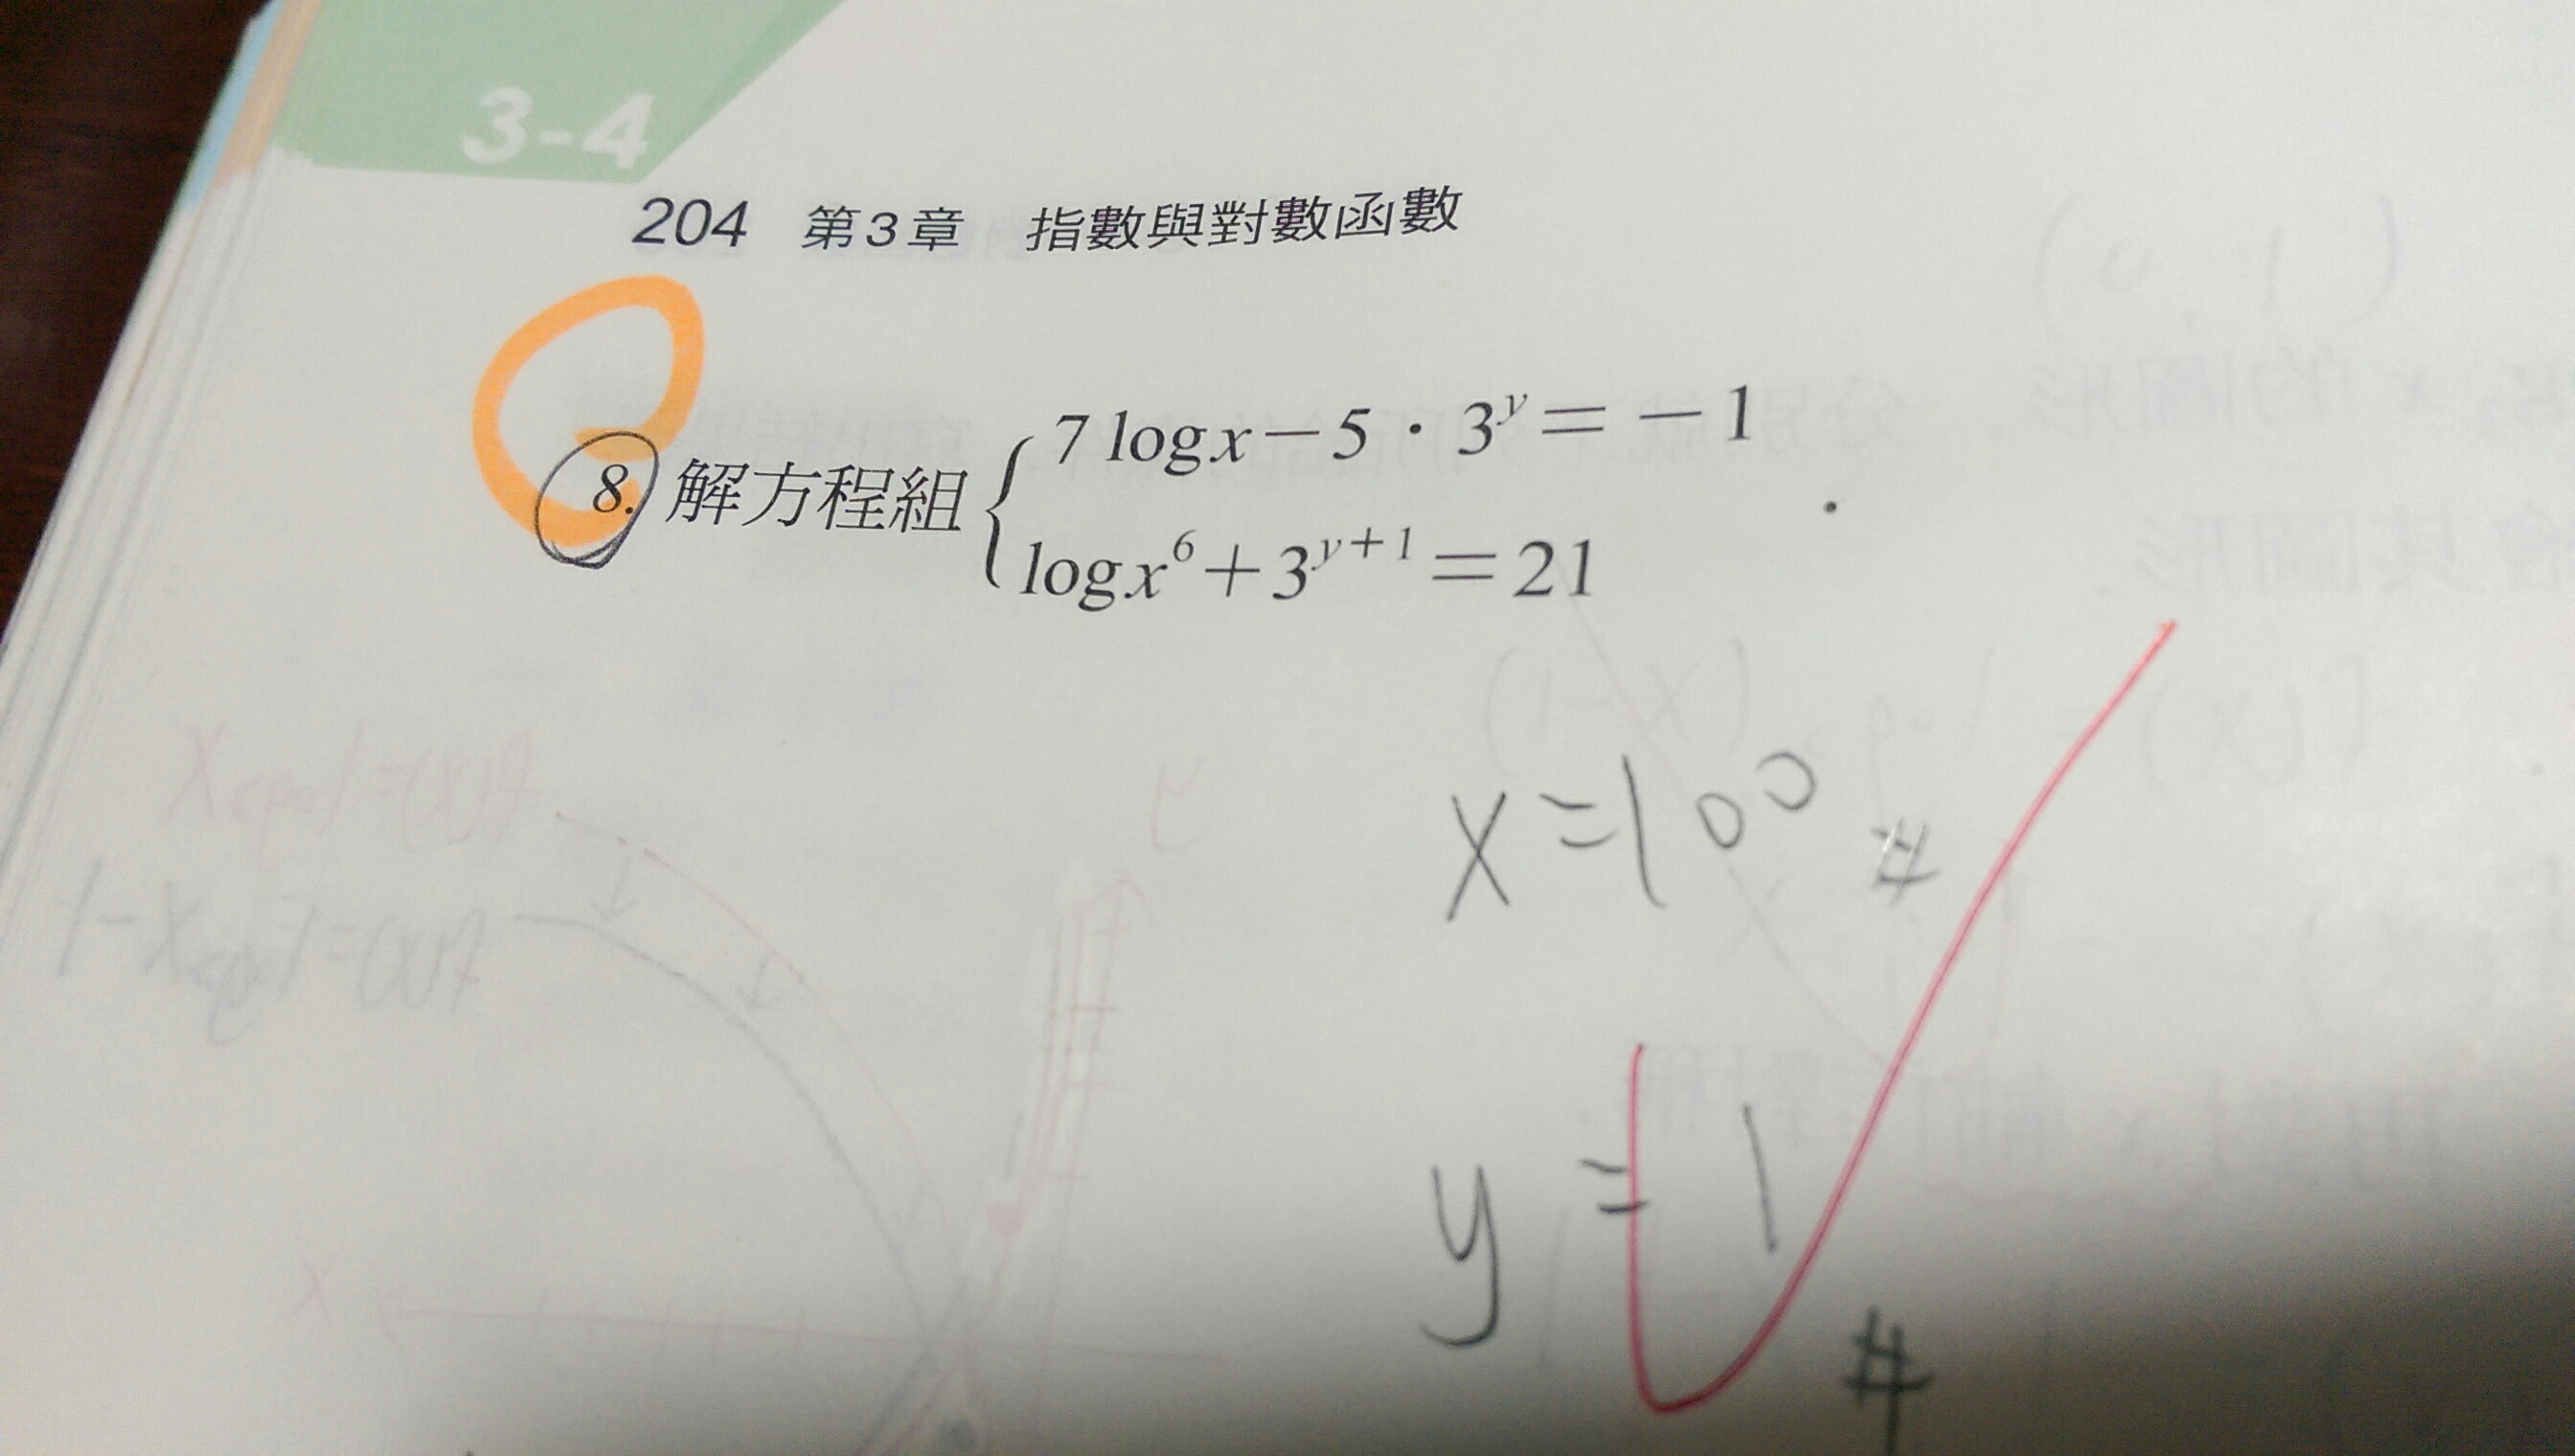 3-4
204 第3章 指數與對數函數
8. 解方程組 { 7 log x − 5 · 3^y = − 1
log x^6 + 3^{y+1} = 21 .
x = 100 #
y = 1 #